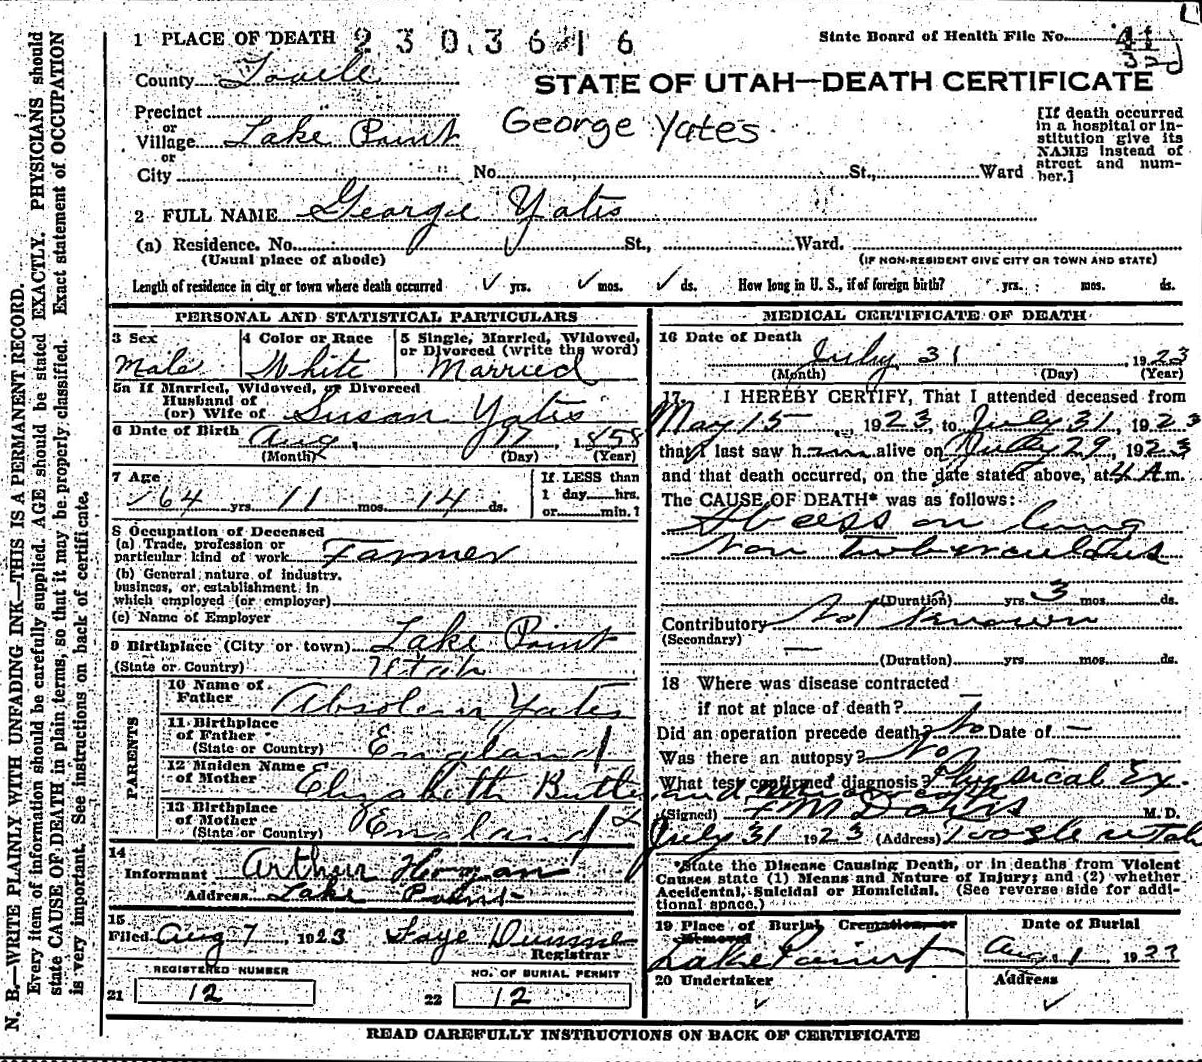 1 PLACE OF DEATH 2303616
State Board of Health File No.
County Tooele
STATE OF UTAH—DEATH CERTIFICATE
Precinct
or
Village Lake Point
George Yates
[If death occurred in a hospital or institution give its NAME instead of street and number.]
or
City No. St., Ward
2 FULL NAME George Yates
(a) Residence. No. St., Ward.
(Usual place of abode) (IF NON-RESIDENT GIVE CITY OR TOWN AND STATE)
Length of residence in city or town where death occurred ✓ yrs. ✓ mos. ✓ ds. How long in U. S., if of foreign birth? yrs. mos. ds.
PERSONAL AND STATISTICAL PARTICULARS
3 Sex
Male
4 Color or Race
White
5 Single, Married, Widowed,
or Divorced (write the word)
Married
5a If Married, Widowed, or Divorced
Husband of
(or) Wife of Susan Yates
6 Date of Birth Aug 17, 1858
(Month) (Day) (Year)
7 Age
64 yrs. 11 mos. 14 ds.
If LESS than
1 day hrs.
or min.?
8 Occupation of Deceased
(a) Trade, profession or
particular kind of work Farmer
(b) General nature of industry,
business, or establishment in
which employed (or employer)
(c) Name of Employer
9 Birthplace (City or town) Lake Point
(State or Country) Utah
PARENTS
10 Name of
Father Absolem Yates
11 Birthplace
of Father
(State or Country) England
12 Maiden Name
of Mother Elizabeth
13 Birthplace
of Mother
(State or Country) England
14
Informant Arthur
Address Lake Point
15
Filed Aug 7, 1923 Faye
Registrar
REGISTERED NUMBER
21 12
NO. OF BURIAL PERMIT
22 12
MEDICAL CERTIFICATE OF DEATH
16 Date of Death
July 31 1923
(Month) (Day) (Year)
17 I HEREBY CERTIFY, That I attended deceased from
May 15, 1923, to July 31, 1923
that I last saw him alive on July 29, 1923
and that death occurred, on the date stated above, at 4 A.m.
The CAUSE OF DEATH* was as follows:
Abcess on lung
Non tuberculous
(Duration) yrs. 3 mos. ds.
Contributory Not Known
(Secondary)
— (Duration) yrs. mos. ds.
18 Where was disease contracted
if not at place of death? —
Did an operation precede death? No Date of —
Was there an autopsy? No
What test confirmed diagnosis? Physical Ex
and
(Signed) F M Davis M. D.
July 31 1923 (Address) Tooele Utah
*State the Disease Causing Death, or in deaths from Violent
Causes state (1) Means and Nature of Injury; and (2) whether
Accidental, Suicidal or Homicidal. (See reverse side for addi-
tional space.)
19 Place of Burial, Cremation, or
Removal
Lake Point
Date of Burial
Aug 1 1923
20 Undertaker
✓
Address
✓
READ CAREFULLY INSTRUCTIONS ON BACK OF CERTIFICATE
N. B.—WRITE PLAINLY WITH UNFADING INK—THIS IS A PERMANENT RECORD.
Every item of information should be carefully supplied. AGE should be stated EXACTLY. PHYSICIANS should
state CAUSE OF DEATH in plain terms, so that it may be properly classified. Exact statement of OCCUPATION
is very important. See instructions on back of certificate.